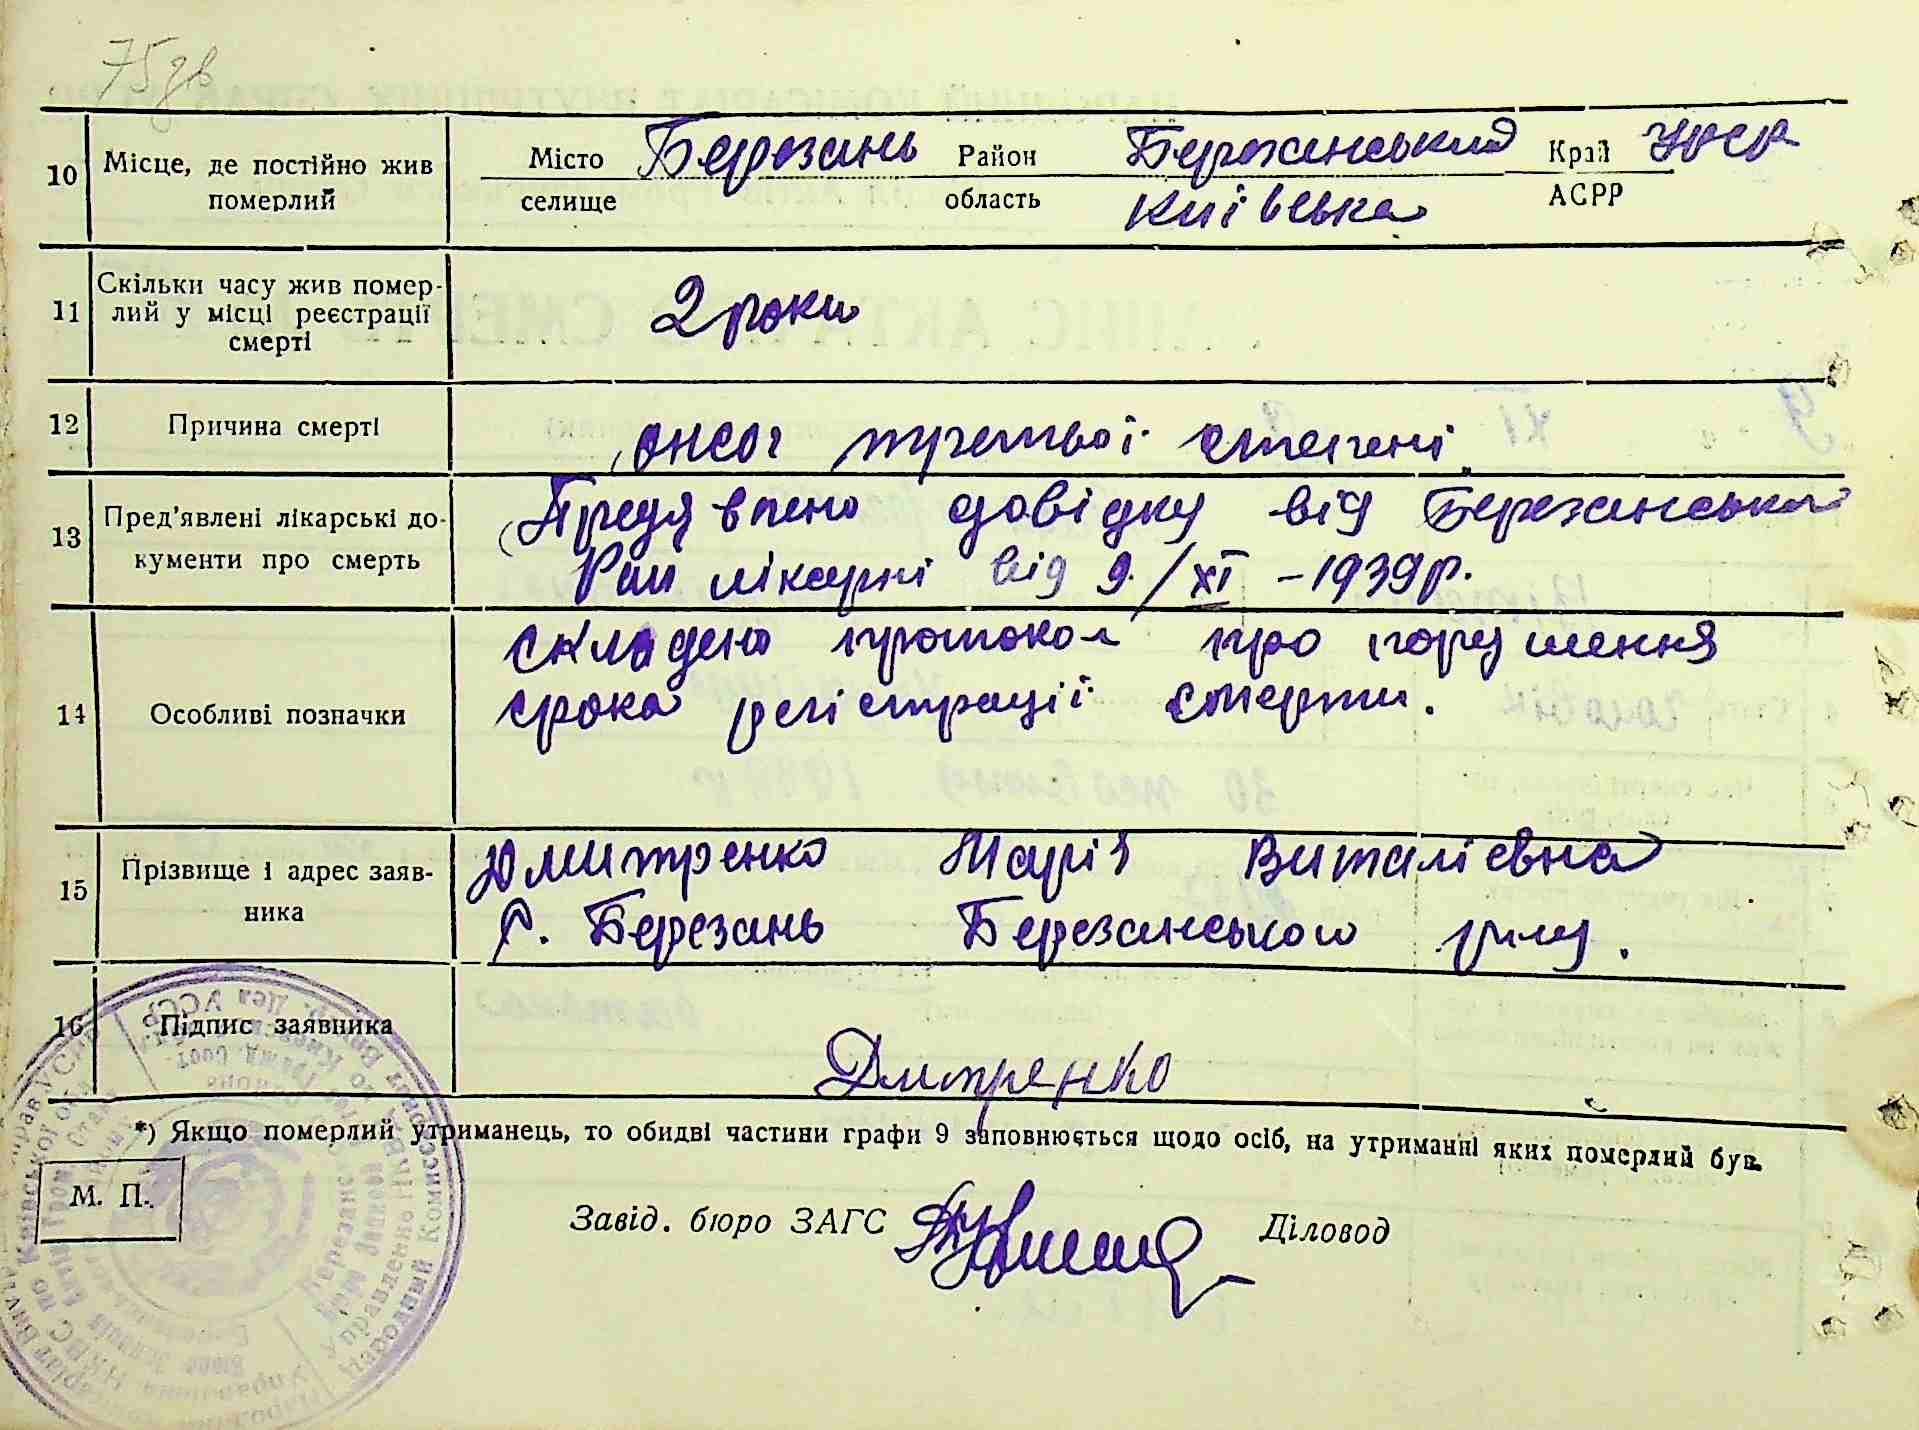 75зв
10 Місце, де постійно жив померлий
Місто Березань Район Березанський Край УРСР
селище область Київська АСРР
11 Скільки часу жив помер-
лий у місці реєстрації
смерті
2 роки
12 Причина смерті
ожог третьої степені
13 Пред'явлені лікарські до-
кументи про смерть
Предявлено довідку від Березанської
Рай лікарні від 9/XI - 1939р.
14 Особливі позначки
складено протокол про порушення
срока регістрації смерти.
15 Прізвище і адрес заяв-
ника
Дмитренко Марія Виталієвна
с. Березань Березанського р-ну.
16 Підпис заявника
Дмитренко
*) Якщо померлий утриманець, то обидві частини графи 9 заповнюється щодо осіб, на утриманні яких померлий був.
М. П.
Завід. бюро ЗАГС Діловод